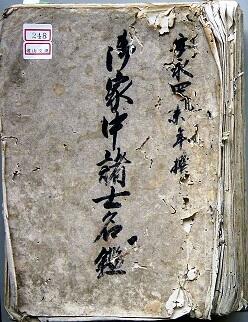 宝永四丁亥年撰之
御家中諸士名鑑
248